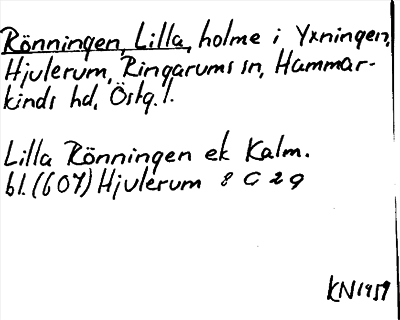 Rönningen, Lilla, holme i Yxningen,
Hjulerum, Ringarums sn, Hammar-
kinds hd, Östg. l.
Lilla Rönningen ek Kalm.
bl. (607) Hjulerum 8 G 2 g
KN 1959